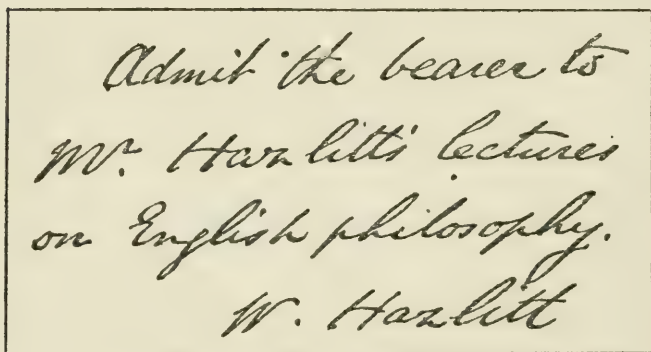 Admit the bearer to
Mr. Hazlitt's lectures
on English philosophy.
W. Hazlitt